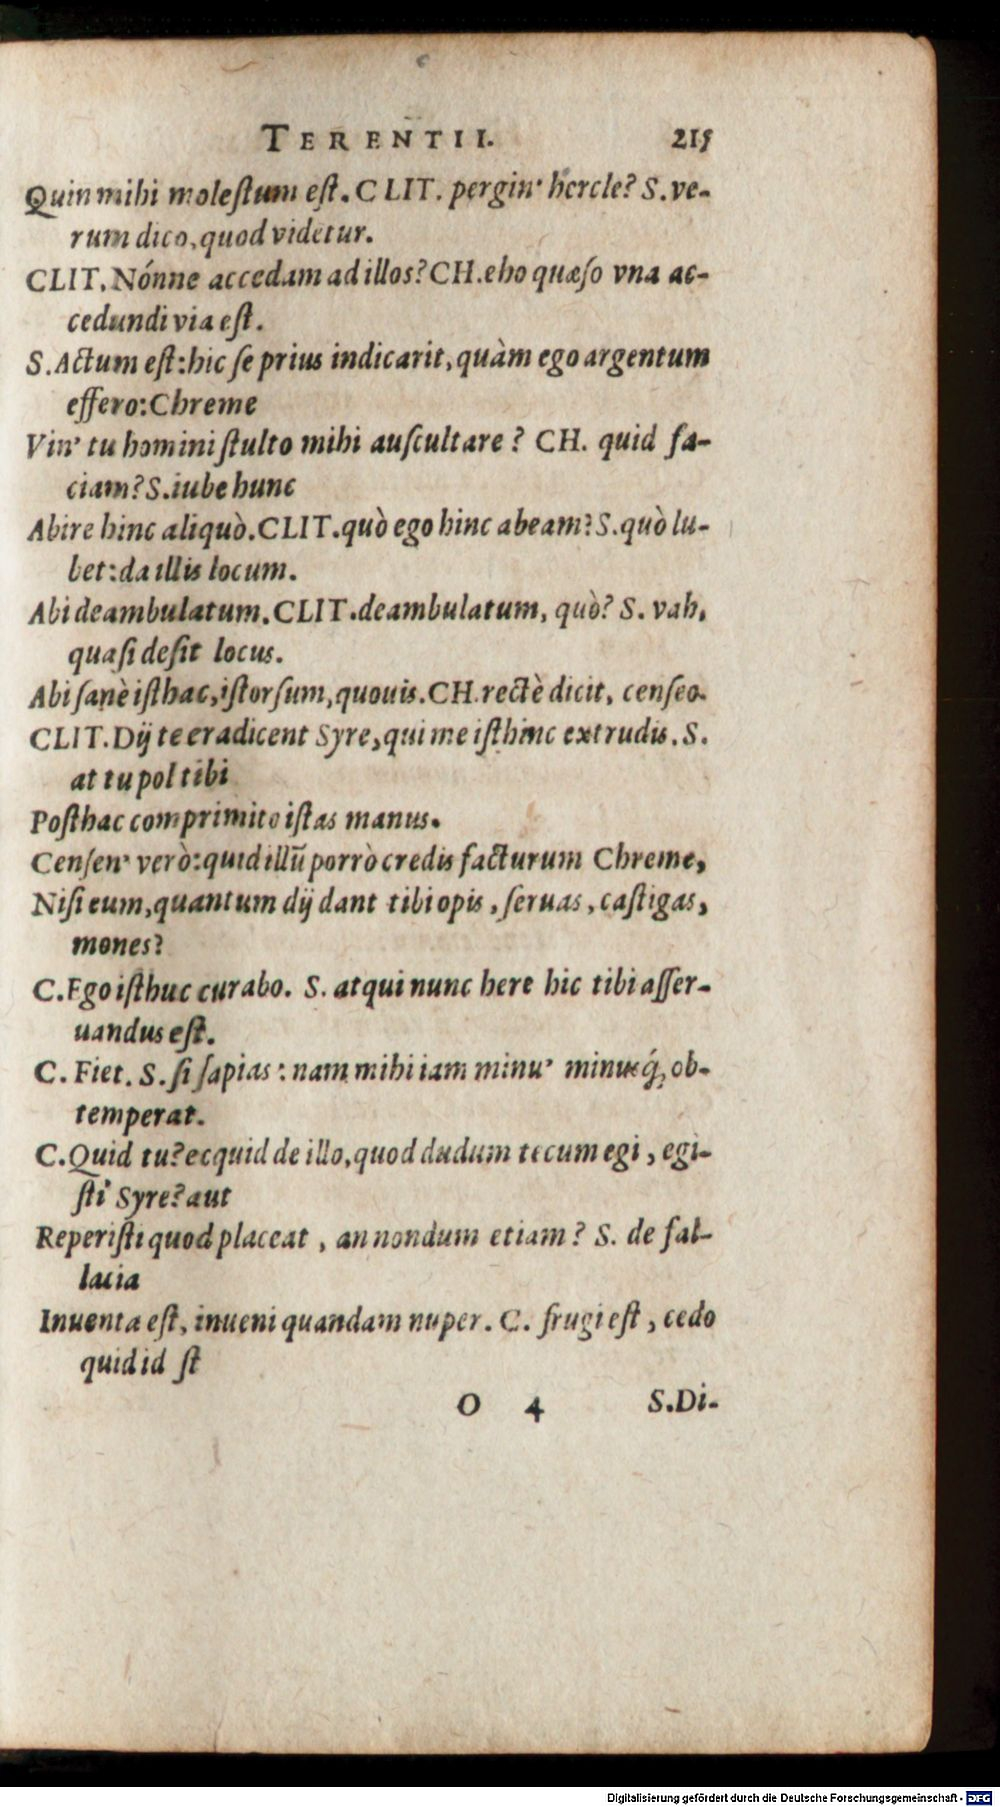 TERENTII. 215
Quin mihi molestum est. CLIT. pergin' hercle? S. ve-
rum dico, quod videtur.
CLIT. Nónne accedam ad illos? CH. eho quæso vna ac-
cedundi via est.
S. Actum est: hic se prius indicarit, quàm ego argentum
effero: Chreme
Vin' tu homini stulto mihi auscultare? CH. quid fa-
ciam? S. iube hunc
Abire hinc aliquò. CLIT. quò ego hinc abeam? S. quò lu-
bet: da illis locum.
Abi deambulatum. CLIT. deambulatum, quò? S. vah,
quasi desit locus.
Abi sanè isthac, istorsum, quouis. CH. rectè dicit, censeo.
CLIT. Dij te eradicent Syre, qui me isthinc extrudis. S.
at tu pol tibi
Posthac comprimito istas manus.
Censen' verò: quid illū porrò credis facturum Chreme,
Nisi eum, quantum dij dant tibi opis, seruas, castigas,
mones?
C. Ego isthuc curabo. S. atqui nunc here hic tibi asser-
uandus est.
C. Fiet. S. si sapias: nam mihi iam minu' minusq́; ob-
temperat.
C. Quid tu? ecquid de illo, quod dudum tecum egi, egi-
sti' Syre? aut
Reperisti quod placeat, an nondum etiam? S. de fal-
lacia
Inuenta est, inueni quandam nuper. C. frugi est, cedo
quid id st
O 4 S. Di-
Digitalisierung gefördert durch die Deutsche Forschungsgemeinschaft - DFG